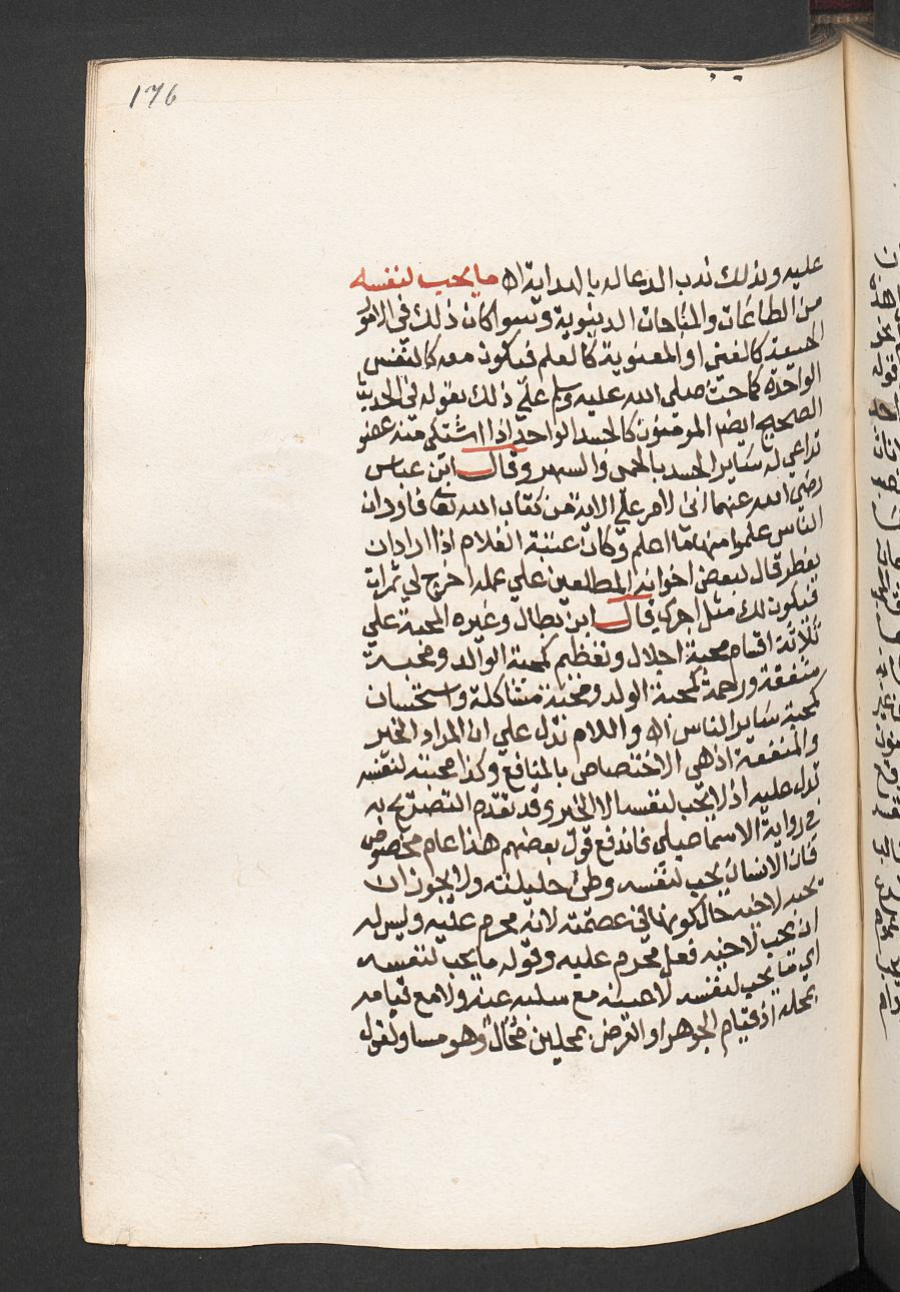 176
عليه ولذلك ندب الدعا له بالهداية اه ما يحب لنفسه
من الطاعات والمباحات الدينوية وسوا كان ذلك في الامور
الحسية كالغنى او المعنوية كالعلم فيكون معه كالنفس
الواحدة كما حث صلى الله عليه وسلم علي ذلك بقوله في الحديث
الصحيح ايضا المومنون كالجسد الواحد اذا اشتكى منه عضو
تداعى له ساير الجسد بالحمى والسهر وقال ابن عباس
رضي الله عنهما اني لامر علي الاية من كتاب الله تعالى فاود ان
الناس علموا منها ما اعلم وكان عتبة الغلام اذا اراد ان
يفطر قال لبعض اخوانه المطلعين علي عمله اخرج لي تمرات
فيكون لك مثل اجري قال ابن بطال وغيره المحبة علي
ثلاثة اقسام محبة اجلال وتعظيم كمحبة الوالد ومحبة
شفقة ورحمة كمحبة الولد ومحبة مشاكلة واستحسان
كمحبة ساير الناس اه واللام تدل علي ان المراد الخير
والمنفعة اذ هي الاختصاص بالمنافع وكذا محبته لنفسه
تدل عليه اذ لا يحب لنفسه الا الخير وقد تقدم التصريح به
في رواية الاسماعيلي فاندفع قول بعضهم هذا عام مخصوص
فان الانسان يحب لنفسه وطئ حليلته ولا يجوز ان
يحبه لاخيه حال كونها في عصمته لانه محرم عليه وليس له
ان يحب لاخيه فعل محرم عليه وقوله ما يحب لنفسه
اي ما يحب لنفسه لا عينه مع سلبه عنه ولا مع قيامه
بمحله اذ قيام الجوهر او العرض بمحلين محال وهو مساو لقول